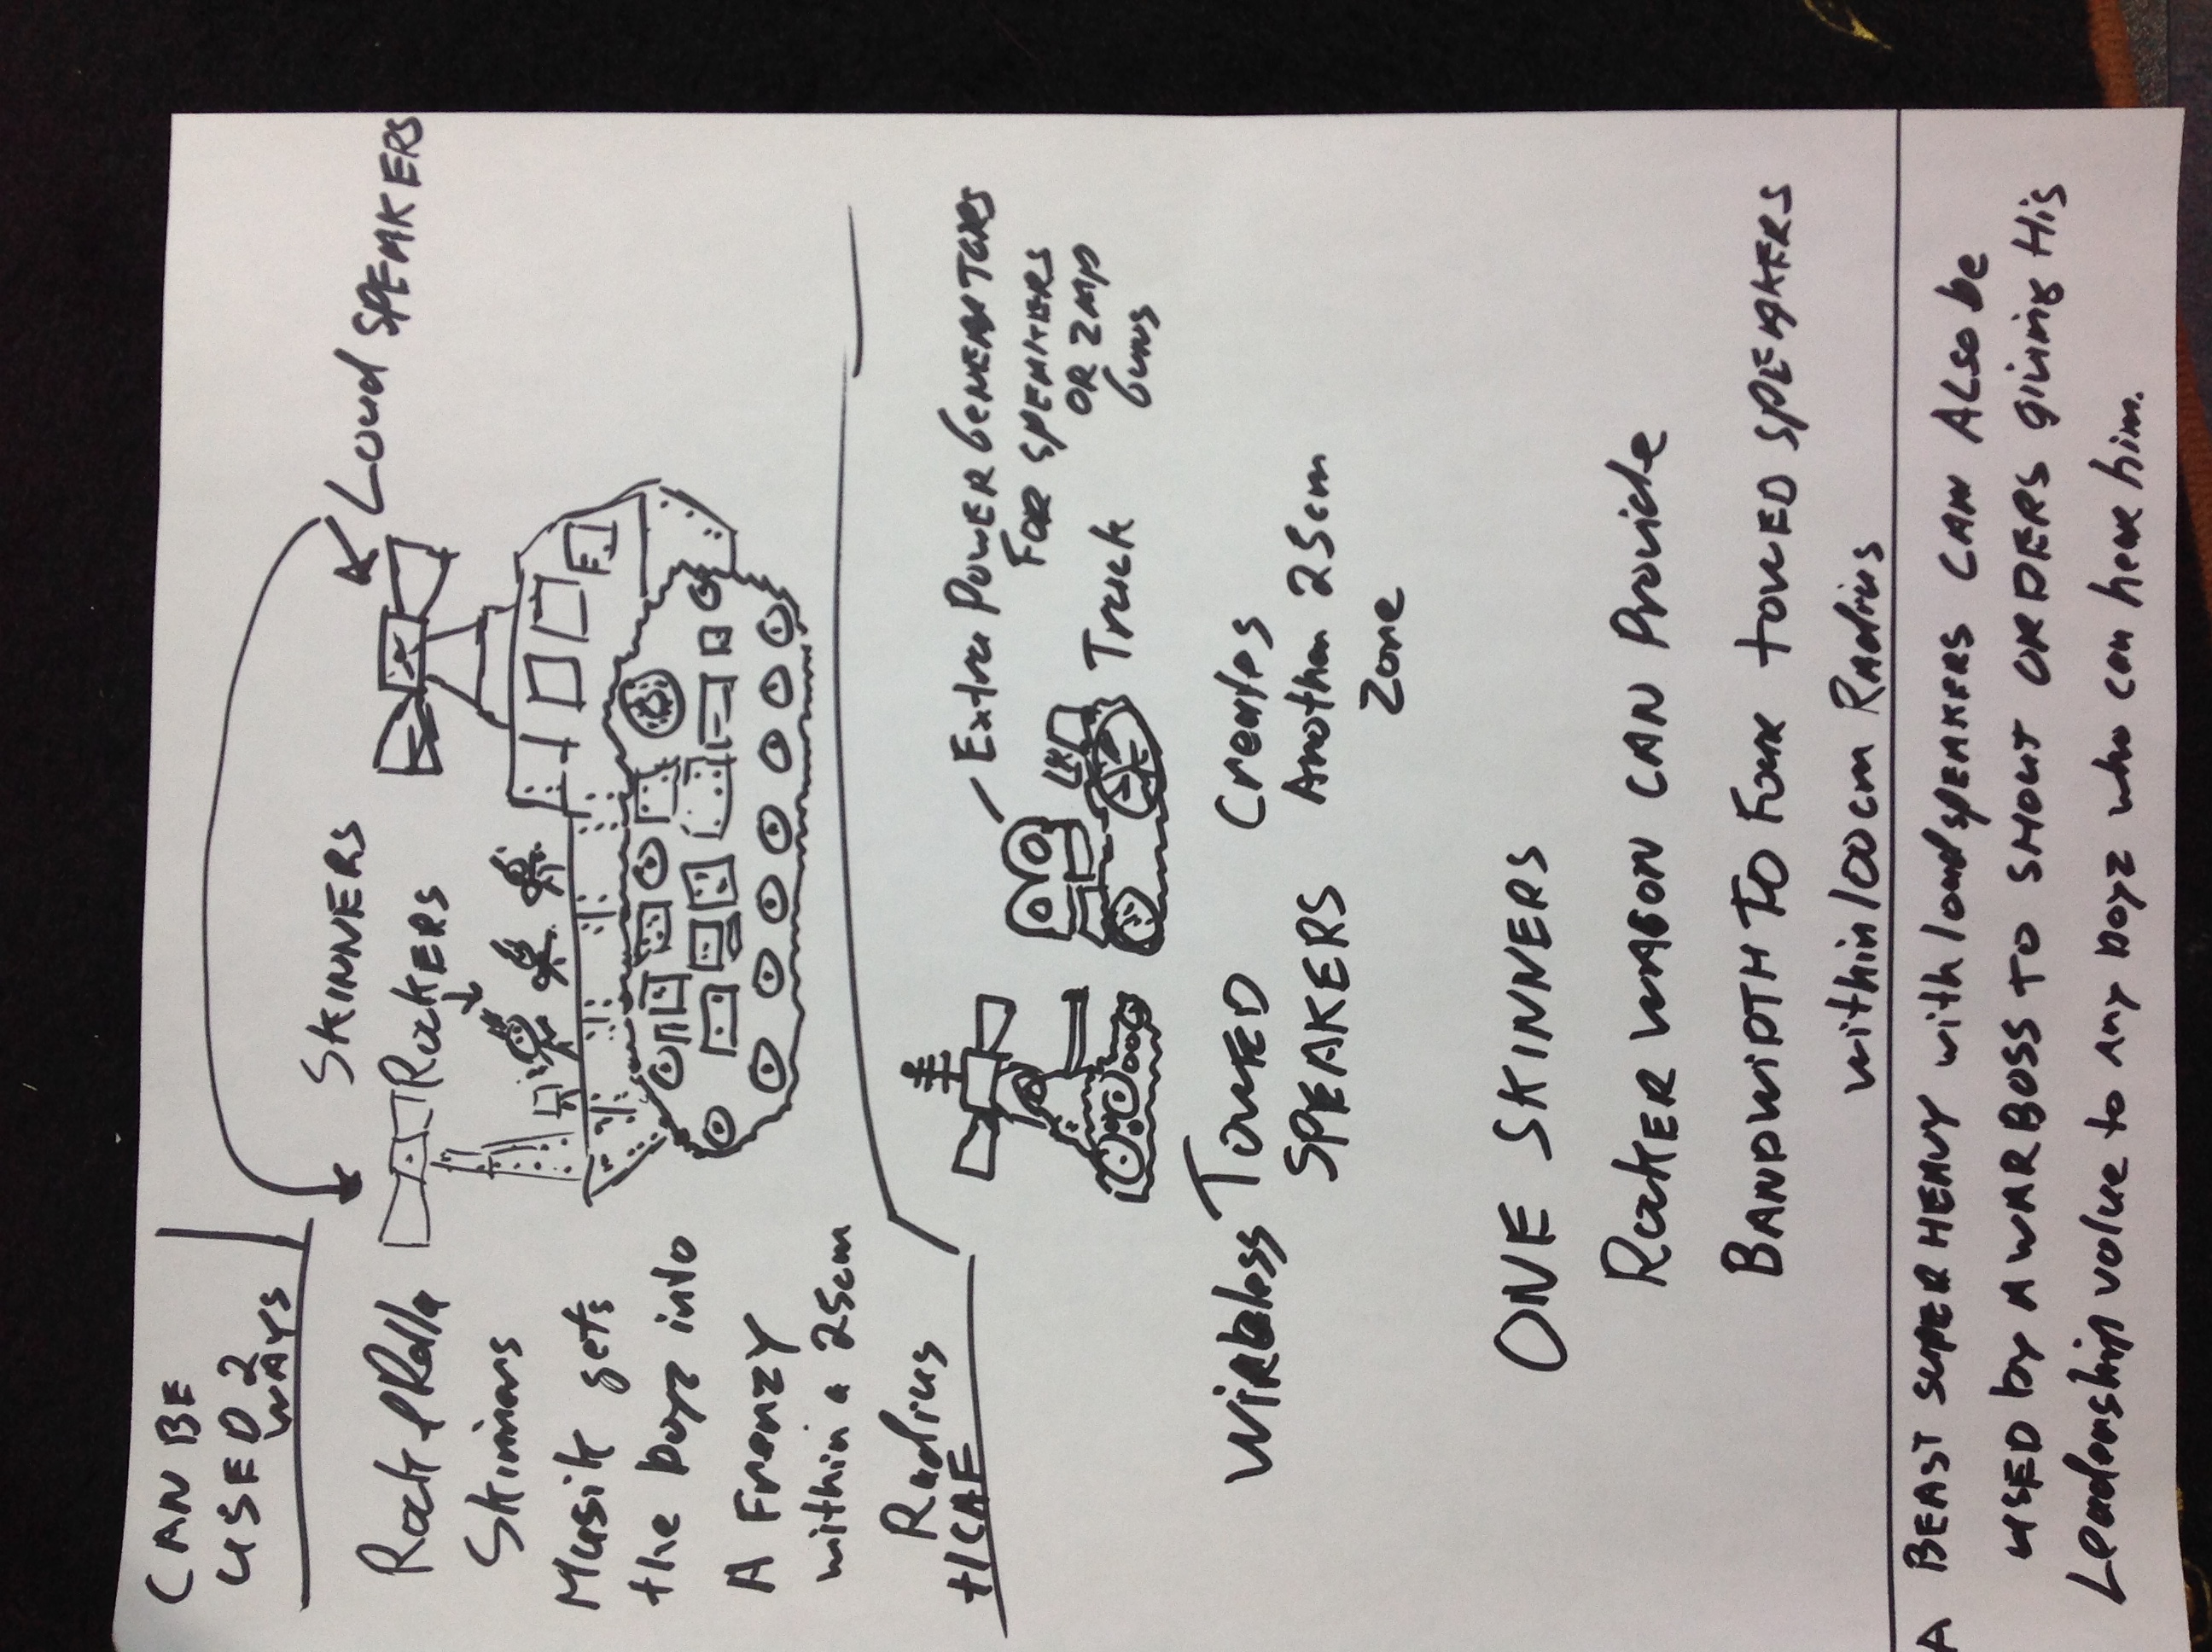 CAN BE
USED 2
WAYS
SKINNERS
Rockers
Loud SPEAKERS
Rock & Rolla
Skinners
Musik gets
the boyz into
A Frenzy
within a 25cm
Radius
+1CAF
Extra Power GENERATORS
FOR SPEAKERS
OR ZAP
Guns
Truck
Wireless TOWED
SPEAKERS
Creates
Another 25cm
Zone
ONE SKINNERS
Rocker WAGON CAN Provide
BANDWIDTH TO Four TOWED SPEAKERS
within 100cm Radius
A BEAST SUPER HEAVY with loudspeakers CAN ALSO be
USED by A WARBOSS TO SHOUT ORDERS giving His
Leadership value to any boyz who can hear him.